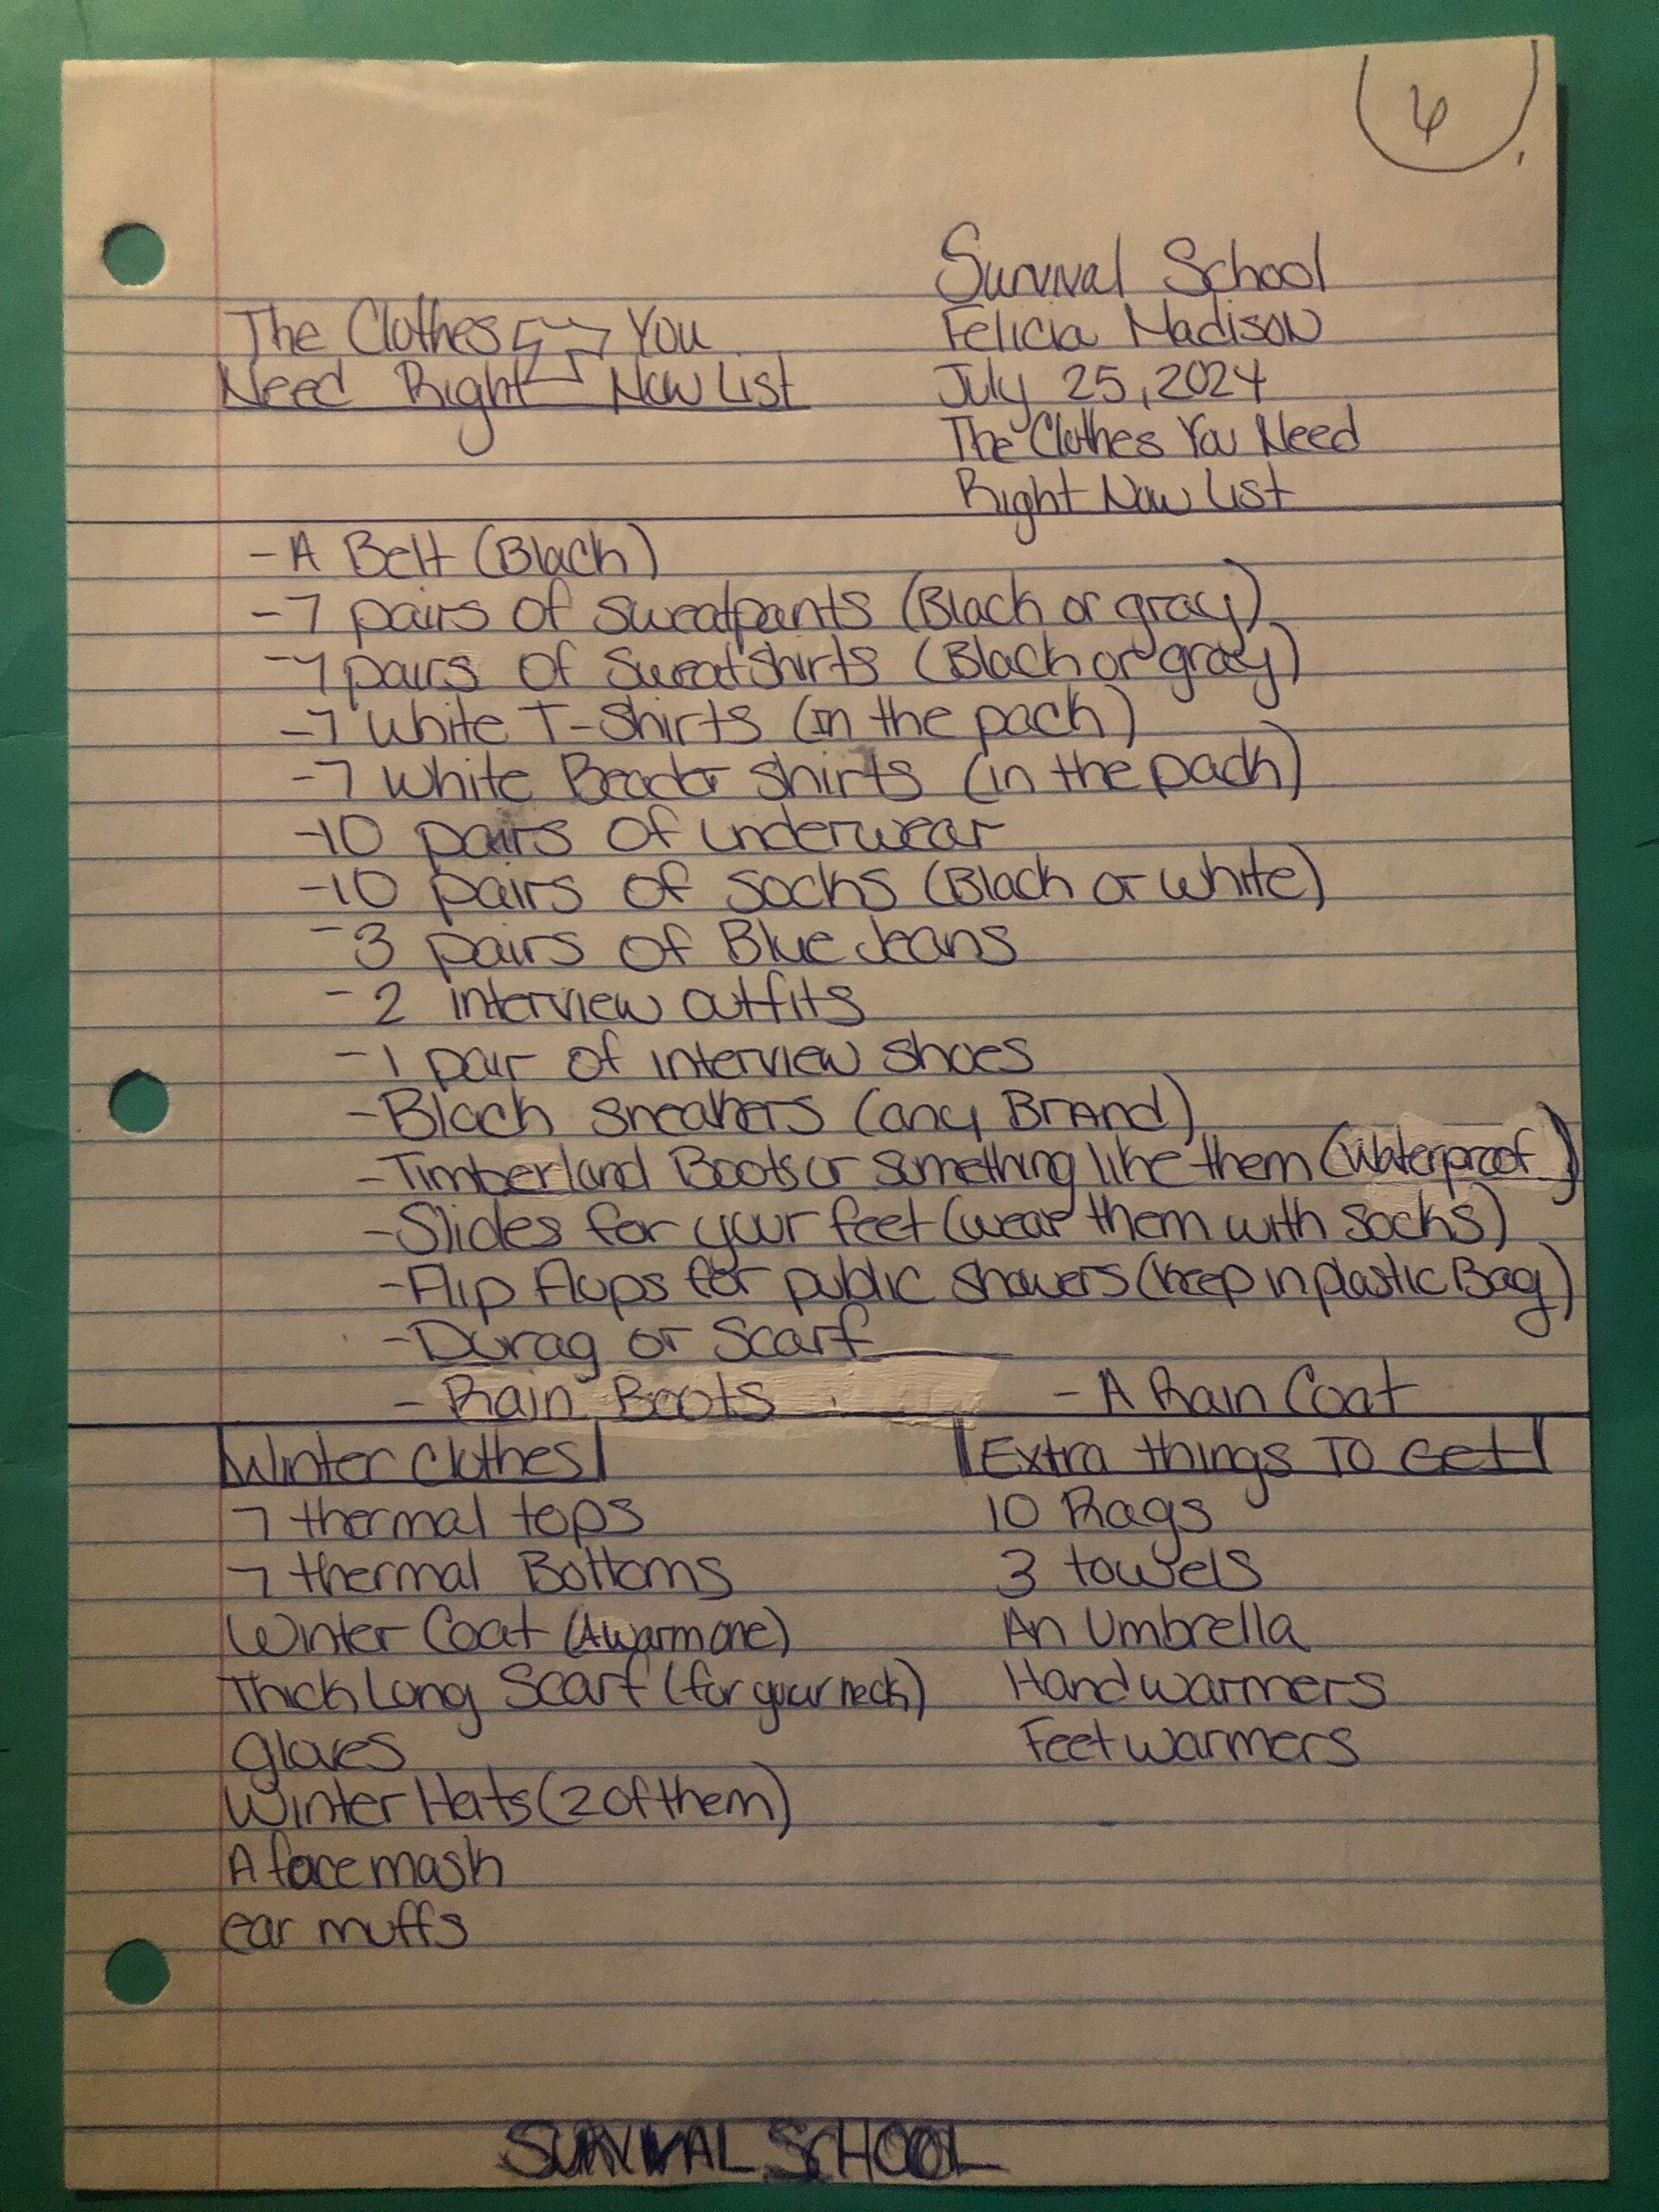 6
Survival School
Felicia Madison
July 25, 2024
The Clothes You Need
Right Now List
The Clothes You
Need Right Now List
- A Belt (Black)
- 7 pairs of sweatpants (Black or gray)
- 7 pairs of sweatshirts (Black or gray)
- 7 White T-Shirts (in the pack)
- 7 White Beader shirts (in the pack)
- 10 pairs of underwear
- 10 pairs of socks (Black or white)
- 3 pairs of Blue Jeans
- 2 interview outfits
- 1 pair of interview shoes
- Black sneakers (any BrANd)
- Timberland Boots or something like them (Waterproof)
- Slides for your feet (wear them with socks)
- Flip flops for public showers (keep in plastic Bag)
- Durag or Scarf
- Rain Boots - A Rain Coat
Winter Clothes
7 thermal tops
7 thermal Bottoms
Winter Coat (A warm one)
Thick Long Scarf (for your neck)
gloves
Winter Hats (2 of them)
A face mask
ear muffs
Extra things To Get
10 Rags
3 towels
An Umbrella
Hand warmers
Feet warmers
SURVIVAL SCHOOL